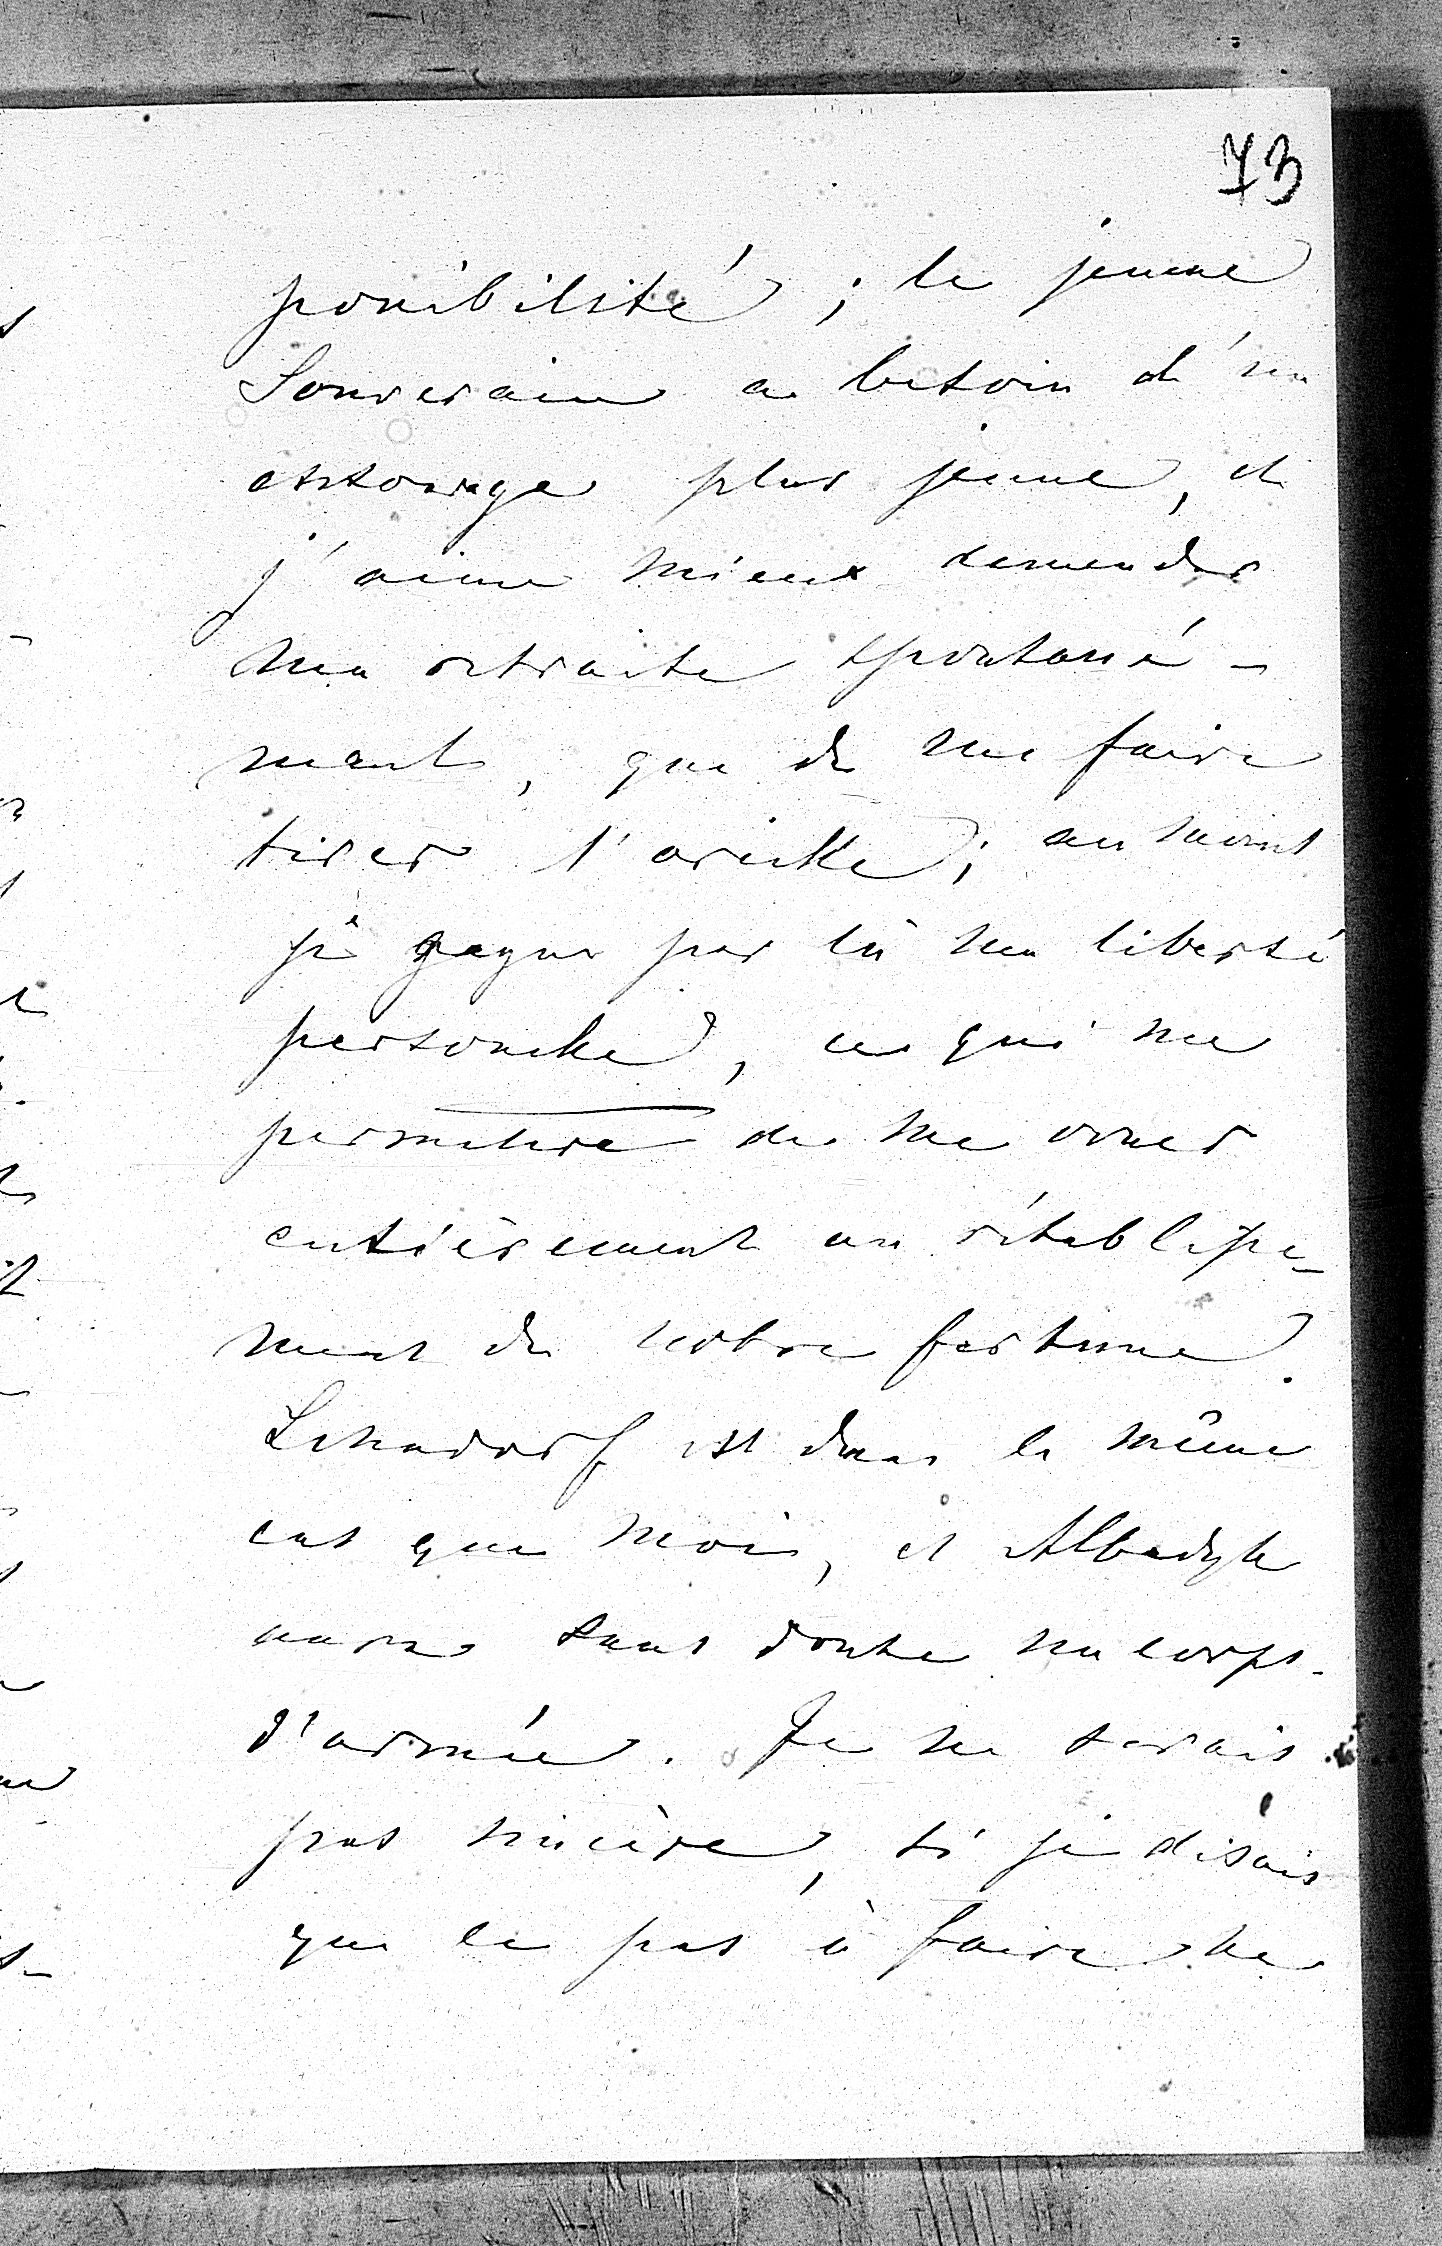 73
ponibilité ; le jeune
Souverain a besoin d'un
entourage plus jeune, et
j'aime mieux demander
ma retraite spontané-
ment, que de me faire
tirer l'oreille ; au moins
je gagne par là ma liberté
personelle, ce qui me
permettra de me vouer
entièrement au rétablisse-
ment de notre fortune.
Lehndorff est dans le même
cas que moi, et Albedyll
aura sans doute un corps
d'armée. Je ne serais
pas sincère, si je disais
que le pas à faire ne